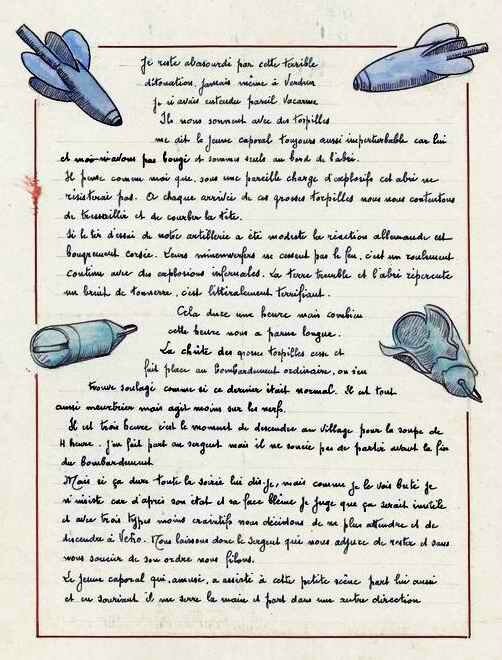 Je reste abasourdi par cette terrible
détonation, jamais même à Verdun
je n'avais entendu pareil vacarme
Ils nous sonnent avec des torpilles
me dit le jeune caporal toujours aussi imperturbable car lui
et moi n'avons pas bougé et sommes seuls au bord de l'abri.
Il pense comme moi que, sous une pareille charge d'explosifs cet abri ne
resisterai pas. A chaque arrivée de ces grosses torpilles nous nous contentons
de tressaillir et de courber la tête.
Si le tir d'essai de notre artillerie a été modeste la réaction allemande est
bougrement corsée. Leurs minenwerfers ne cessent pas le feu, c'est un roulement
continu avec des explosions infernales. La terre tremble et l'abri répercute
un bruit de tonnerre, c'est littéralement terrifiant.
Cela dure une heure mais combien
cette heure nous a parue longue.
La chûte des grosses torpilles cesse et
fait place au bombardement ordinaire, on s'en
trouve soulagé comme si ce dernier était normal. Il est tout
aussi meurtrier mais agit moins sur les nerfs.
Il est trois heures c'est le moment de descendre au village pour la soupe de
4 heures. J'en fait part au sergent mais il ne soucie pas de partir avant la fin
du bombardement.
Mais si ça dure toute la soirée lui dis-je, mais comme je le vois buté je
n'insiste car d'après son état et sa face blême je juge que ça serait inutile
et avec trois types moins craintifs nous décidons de ne plus attendre et de
descendre à Vetro. Nous laissons donc le sergent qui nous adjure de rester et sans
nous soucier de son ordre nous filons.
Le jeune caporal qui, amusé, a assisté à cette petite scène part lui aussi
et en souriant il me serre la main et part dans une autre direction